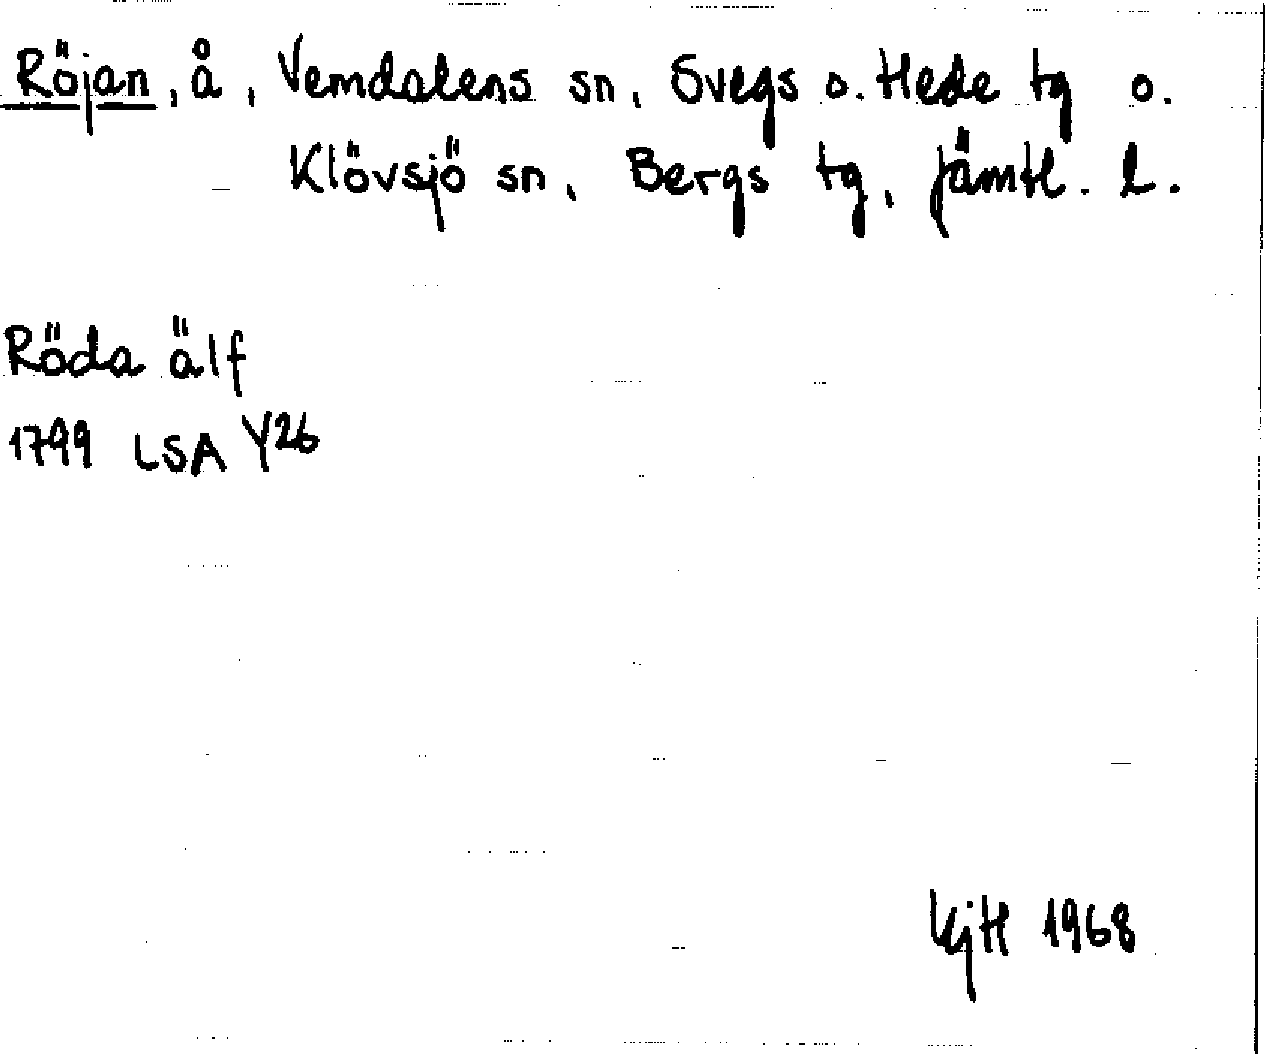 Röjan, å, Vemdalens sn, Svegs o. Hede tg o.
Klövsjö sn, Bergs tg, Jämtl. l.
Röda älf
1799 LSA Y26
KjH 1968